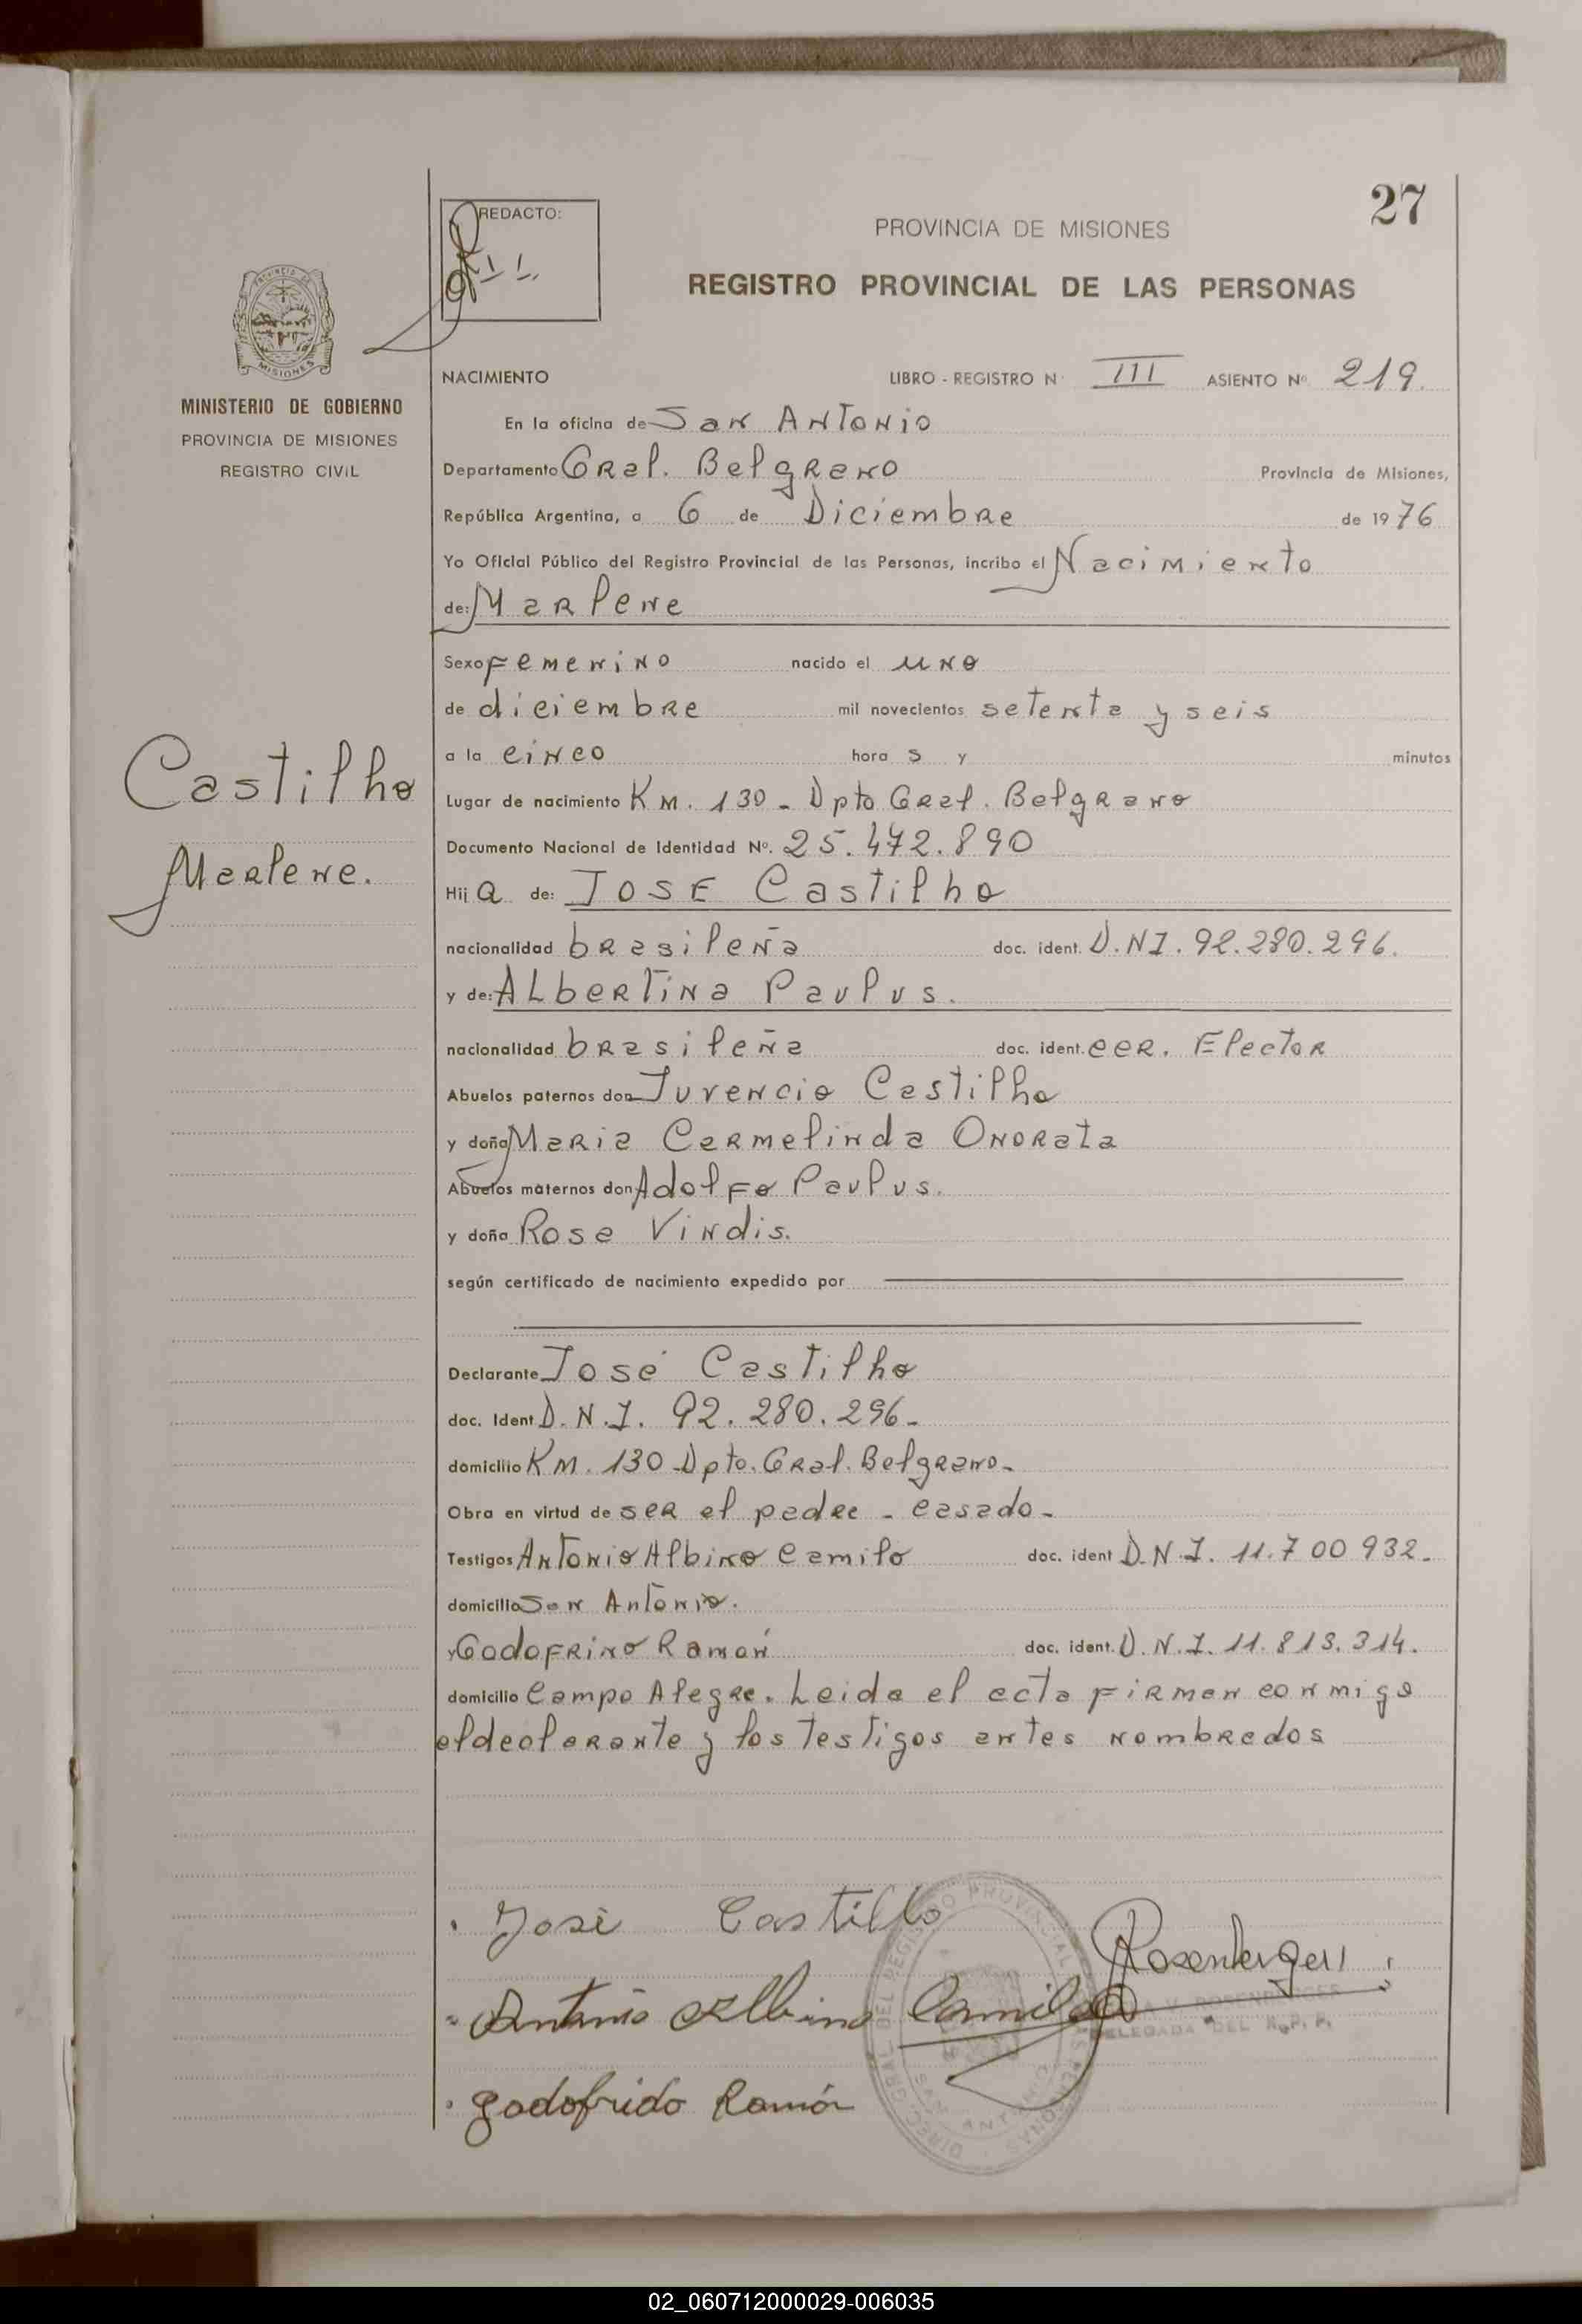 27
REDACTO:
PROVINCIA DE MISIONES
REGISTRO PROVINCIAL DE LAS PERSONAS
MINISTERIO DE GOBIERNO
PROVINCIA DE MISIONES
REGISTRO CIVIL
Castilho
Marlene.
NACIMIENTO LIBRO - REGISTRO Nº III ASIENTO Nº 219.
En la oficina de San Antonio
Departamento Gral. Belgrano Provincia de Misiones,
República Argentina, a 6 de Diciembre de 1976
Yo Oficial Público del Registro Provincial de las Personas, incribo el Nacimiento
de: Marlene
Sexo Femenino nacido el uno
de diciembre mil novecientos setenta y seis
a la cinco hora s y minutos
Lugar de nacimiento Km. 130 - Dpto Gral. Belgrano
Documento Nacional de Identidad Nº. 25.472.890
Hij a de: JOSE Castilho
nacionalidad brasileña doc. ident. D.N.I. 92.280.296.
y de: Albertina Paulus.
nacionalidad brasileña doc. ident. cer. Elector
Abuelos paternos don Juvencio Castilho
y doña Maria Carmelinda Onorata
Abuelos maternos don Adolfo Paulus.
y doña Rosa Vindis.
según certificado de nacimiento expedido por
Declarante José Castilho
doc. Ident D.N.I. 92.280.296-
domicilio Km. 130 Dpto. Gral. Belgrano-
Obra en virtud de ser el padre - casado-
Testigos Antonio Albino Camilo doc. ident D.N.I. 11.700932-
domicilio San Antonio.
y Godofrino Ramón doc. ident. D.N.I. 11.813.314.
domicilio Campo Alegre. Leida el acta firman conmigo
el declarante y los testigos antes nombrados
José Castillo
Rosenberger
Antonio Albino Camilo
ROSENBERGER
DELEGADA DEL R.P.P.
Godofrido Ramón
DIREC. GRAL. DEL REGISTRO PROVINCIAL DE LAS PERSONAS
SAN ANTONIO
02_060712000029-006035